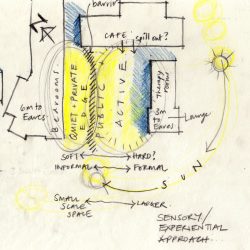 barrier
CAFE spill out?
Bedrooms
QUIET-PRIVATE
EDGE
PUBLIC
ACTIVE
Therapy
rooms
6m to
Eaves
3m
to
Eaves
Lounge
SOFT HARD?
INFORMAL FORMAL
SUN
SMALL
SCALE
SPACE
LARGER.
SENSORY/
EXPERIENTIAL
APPROACH...